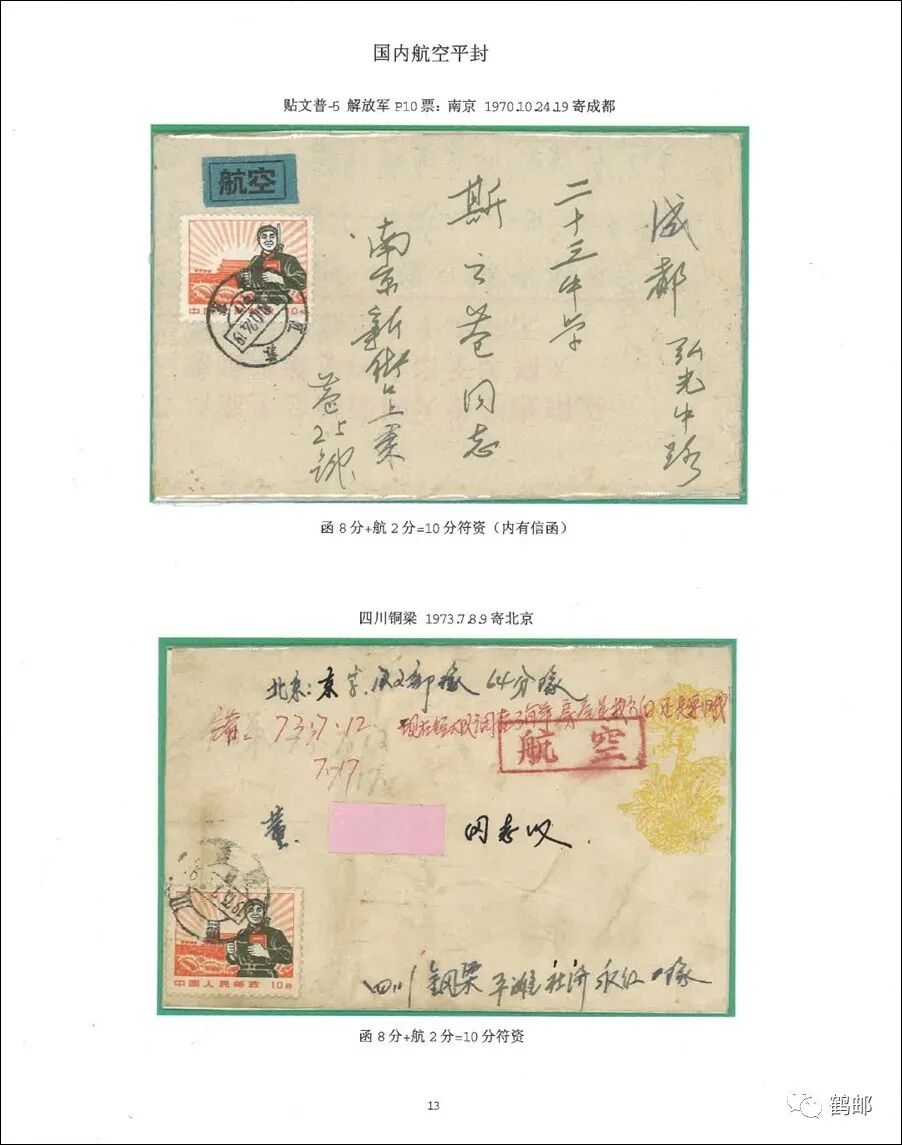 国内航空平封
贴文普-5 解放军 P10 票：南京 1970.10.24.19 寄成都
航空
中国人民邮政 10分
成都弘光中路
二十三中学
斯云苍同志
南京新街口上乘
巷25号
函 8 分+航 2 分=10 分符资（内有信函）
四川铜梁 1973.7.8.9 寄北京
北京：京字
64分队
73.7.12
7.17
航空
董
同志收
中国人民邮政 10分
四川铜梁平滩
函 8 分+航 2 分=10 分符资
13
鹤邮